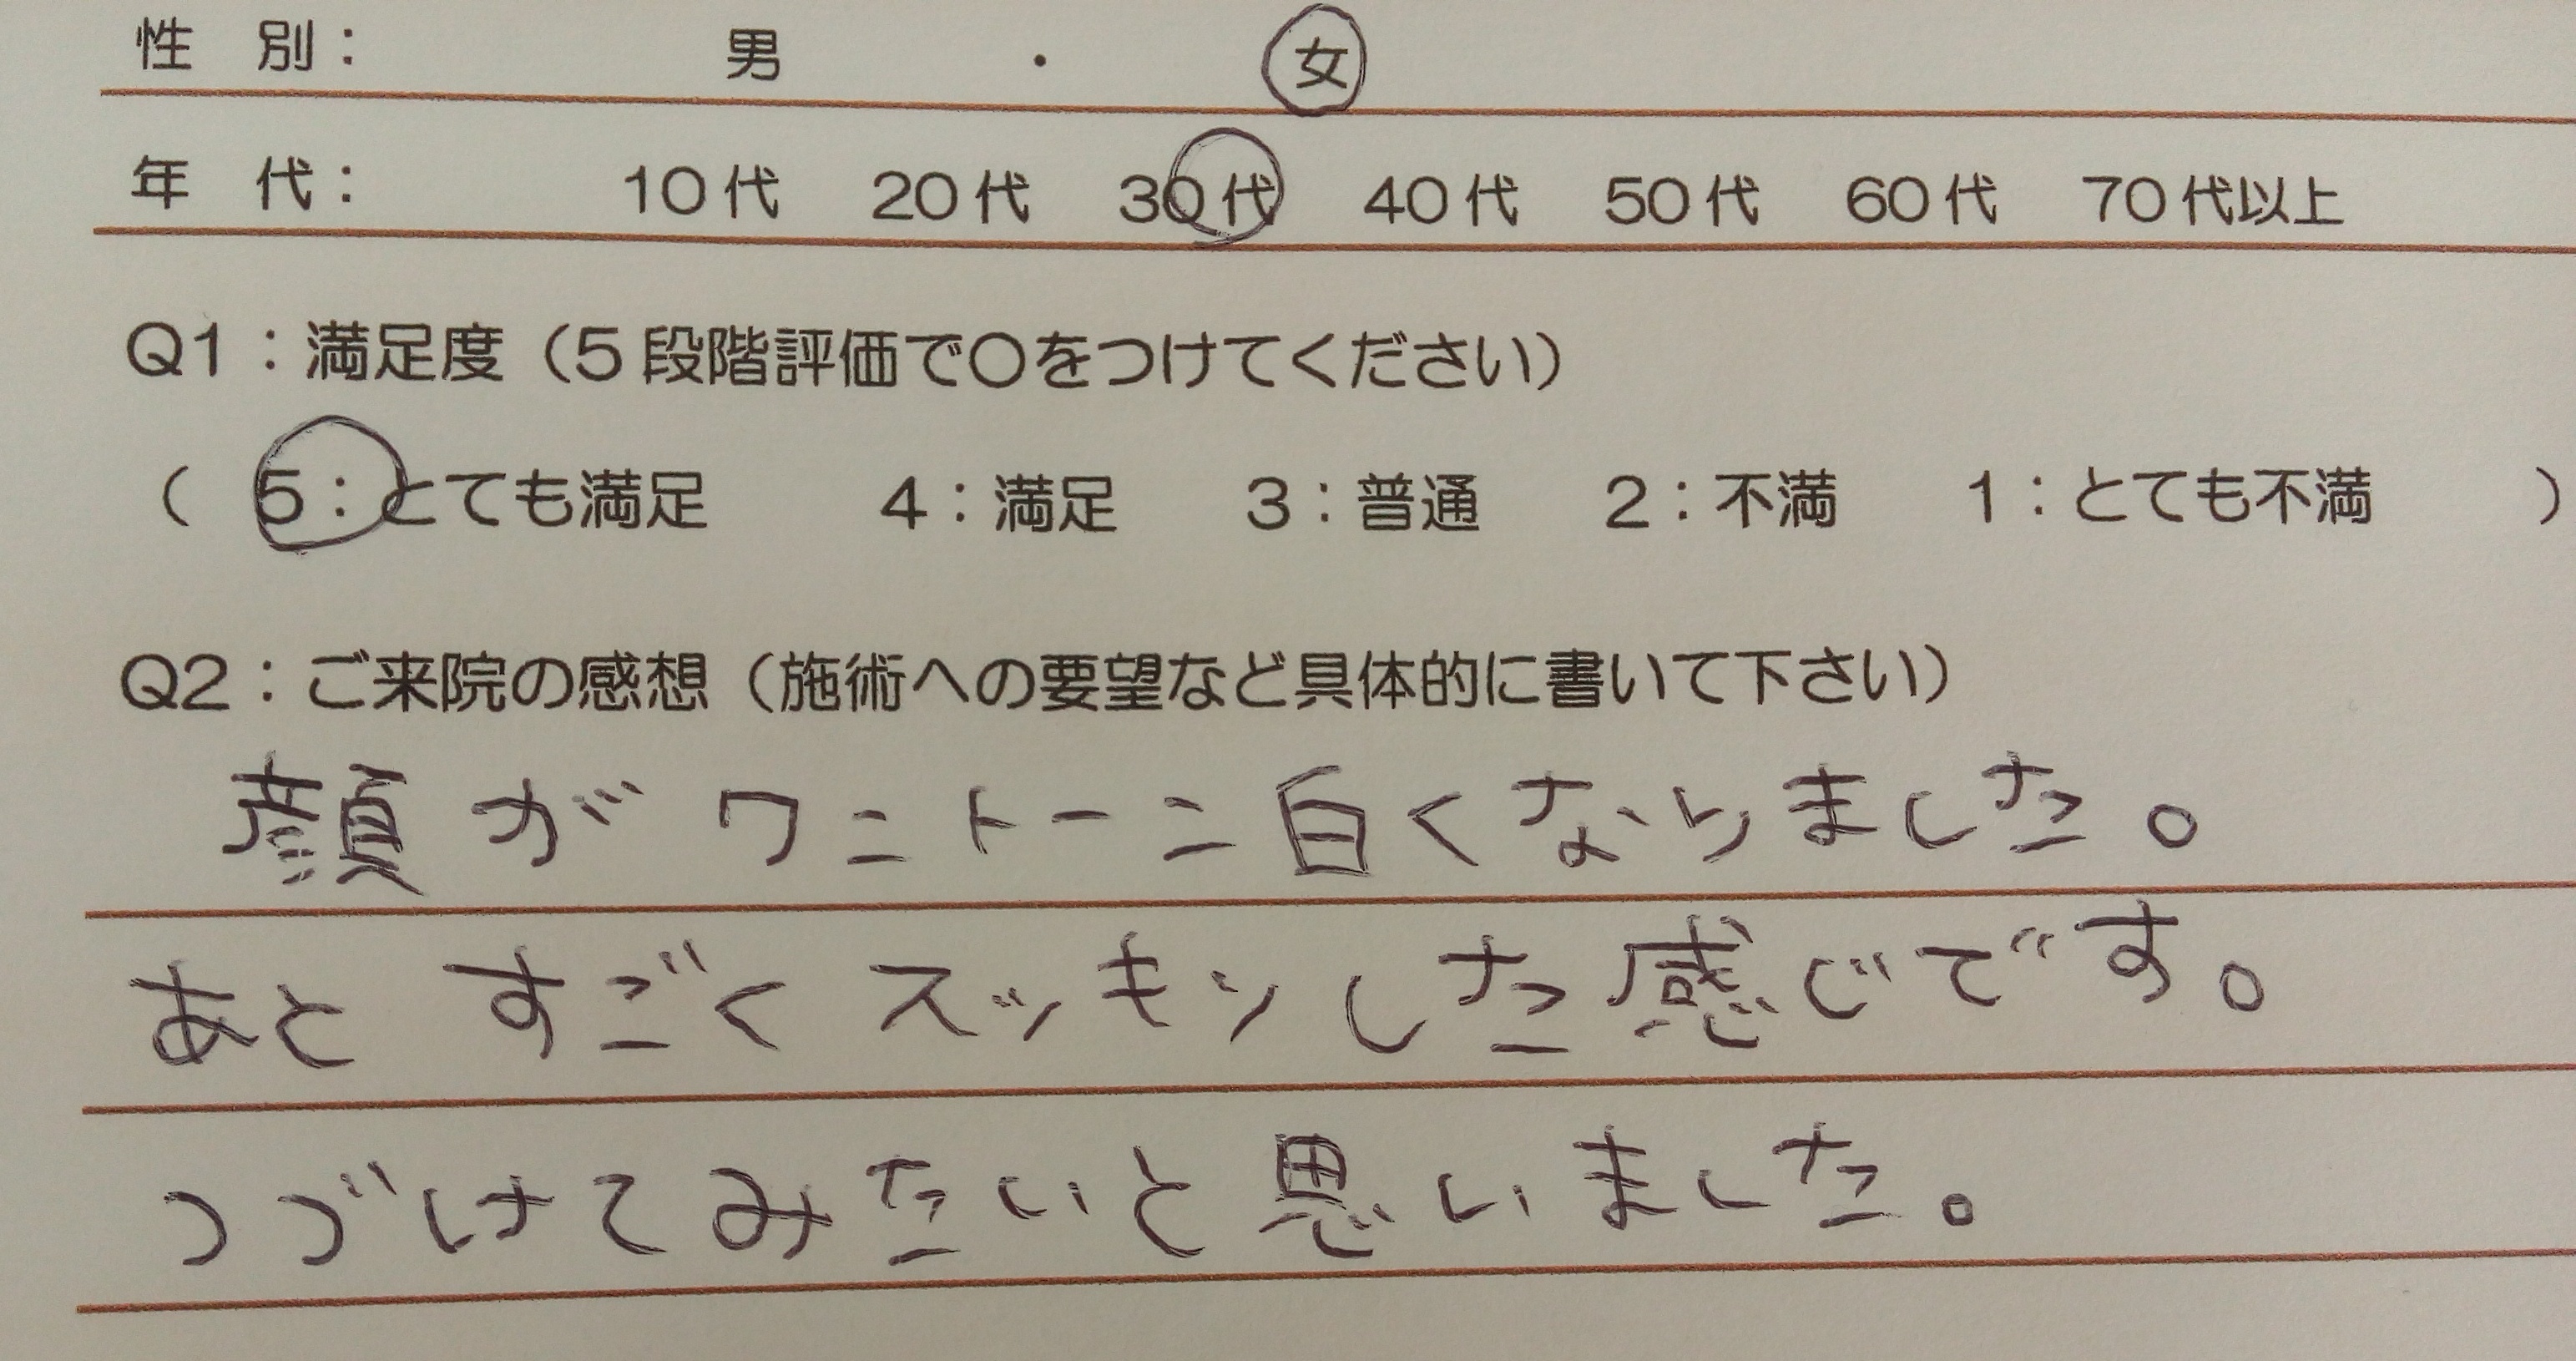 性 別： 男 ・ 女
年 代： 10代 20代 30代 40代 50代 60代 70代以上
Q1：満足度（5段階評価で〇をつけてください）
（ 5：とても満足 4：満足 3：普通 2：不満 1：とても不満 ）
Q2：ご来院の感想（施術への要望など具体的に書いて下さい）
顔がワントーン白くなりました。
あと すごくスッキリした感じです。
つづけてみたいと思いました。